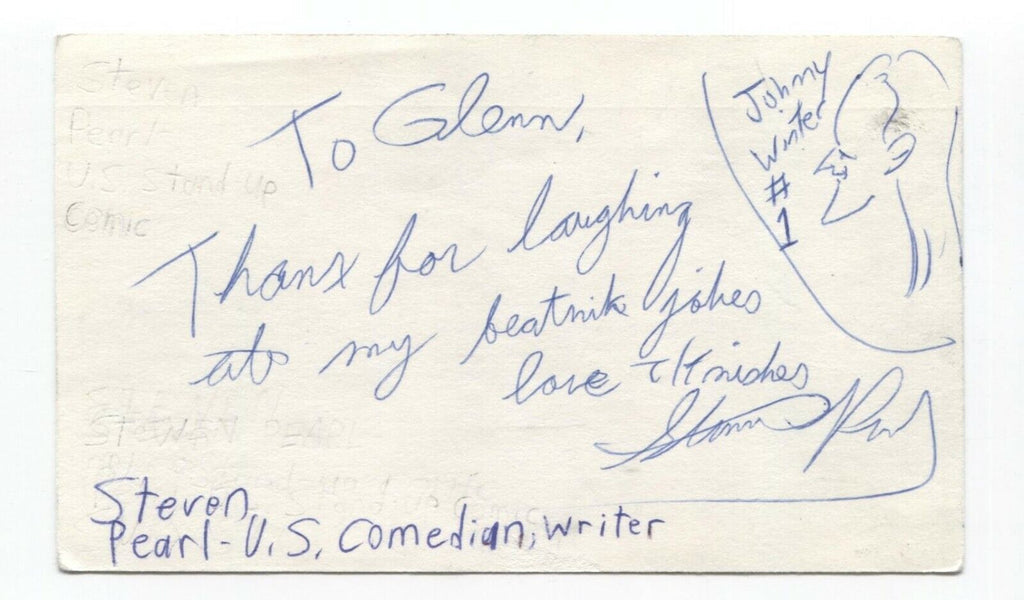 Steven
Pearl-
U.S. Stand-up
Comic
To Glenn,
Thanx for laughing
at my beatnik jokes
love + Knishes
Steven Pearl
Johnny
Winter
#
1
STEVEN PEARL
Steven
Pearl-U.S. Comedian, writer